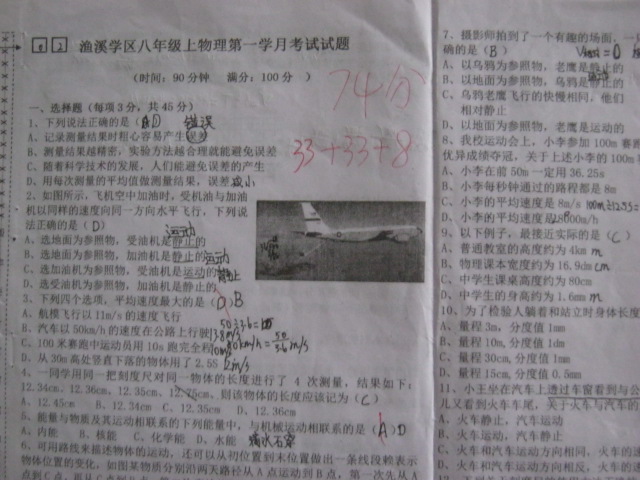 渔溪学区八年级上物理第一学月考试试题
(时间：90分钟 满分：100分 )
74分
33+33+8
一、选择题（每项3分，共45分）
1、下列说法正确的是（ D ） 错误
A、记录测量结果时粗心容易产生误差
B、测量结果越精密，实验方法越合理就能避免误差
C、随着科学技术的发展，人们能避免误差的产生
D、用每次测量的平均值做测量结果，误差减小
2、如图所示，飞机空中加油时，受机油与加油
机以同样的速度向同一方向水平飞行，下列说
法正确的是（ D ）
A、选地面为参照物，受油机是静止的 运动
B、选地面为参照物，加油机是静止的 运动
C、选加油机为参照物，受油机是运动的 静止
D、选受油机为参照物，加油机是静止的
3、下列四个选项，平均速度最大的是（ D ）B
A、航模飞行以11m/s的速度飞行
B、汽车以50km/h的速度在公路上行驶
C、100米赛跑中运动员用10s跑完全程
D、从30m高处竖直下落的物体用了2.5S
4、一同学用同一把刻度尺对同一物体的长度进行了 4 次测量，结果如下：
12.34cm、12.36cm，12.35cm、12.75cm、则该物体的长度应该记为（ C ）
A、12.45cm B、12.34cm C、12.35cm D、12.36cm
5、能量与物质及其运动相联系的下列能量中，与机械运动相联系的是（ A ）D
A、内能 B、核能 C、化学能 D、水能 滴水石穿
6、可用路来描述物体的运动，还可以从初位置到末位置做出一条线段赖表示
物体位置的变化，如图某物质分别沿两天路径从A点运动到B点，第一次先从A
7、摄影师拍到了一个有趣的场面，一只
确的是（ B ）
A、以乌鸦为参照物，老鹰是静止的
B、以地面为参照物，乌鸦是静止的 运动
C、乌鸦老鹰飞行的快慢相同，他们
相对静止
D、以地面为参照物，老鹰是运动的
8、我校运动会上，小李参加100m赛跑
优异成绩夺冠，关于上述小李的100m
A、小李在前50m一定用36.25s
B、小李每秒钟通过的路程都是8m
C、小李的平均速度是8m/s
D、小李的平均速度用28800m/h
9、以下例子，最接近实际的是（ C ）
A、普通教室的高度约为4km m
B、物理课本宽度约为16.9dm cm
C、中学生课桌高度约为80cm
D、中学生的身高约为1.6mm m
10、为了检验人躺着和站立时身体长度
A、量程3m，分度值1mm
B、量程10m，分度值1dm
C、量程30cm，分度值1mm
D、量程15cm，分度值0.5mm
11、小王坐在汽车上透过车窗看到与公
儿又看到火车车尾，关于火车与汽车的
A、火车静止，汽车运动
B、火车运动，汽车静止
C、火车和汽车运动方向相同，火车的速
D、火车和汽车运动方向相反，火车的速